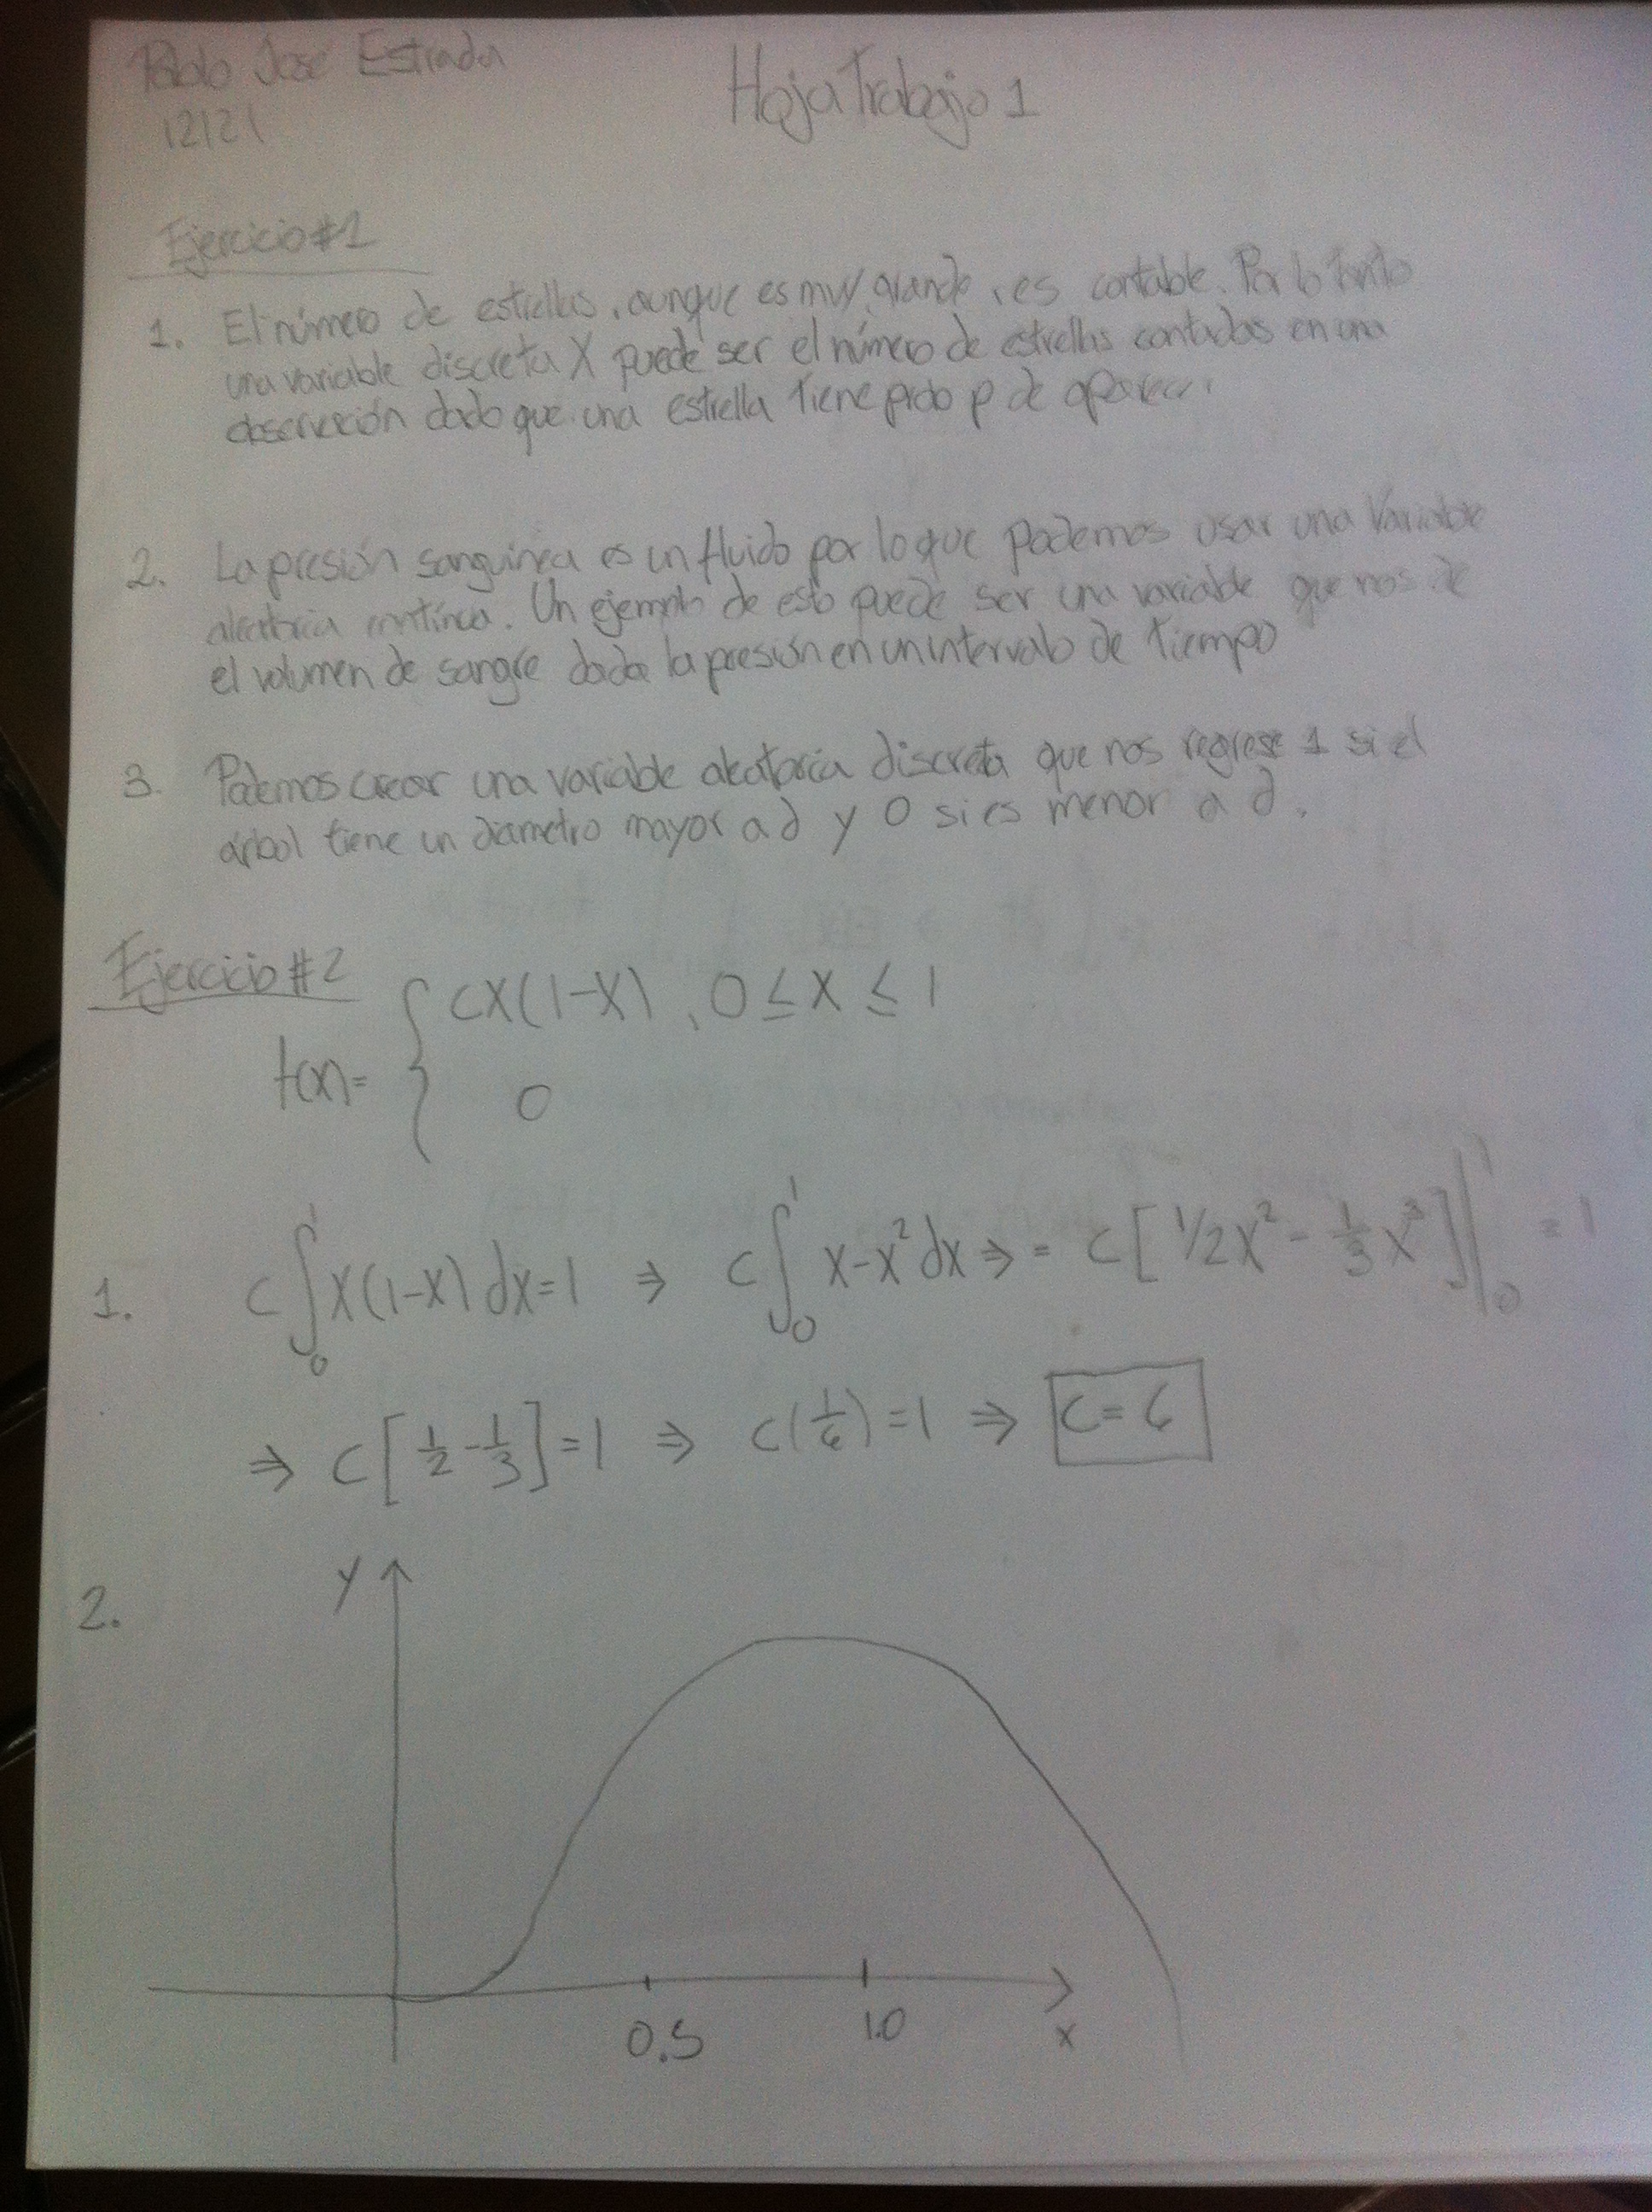 Pablo José Estrada
Hoja Trabajo 1
12121
Ejercicio #1
1. El número de estrellas, aunque es muy grande, es contable. Por lo tanto
una variable discreta X puede ser el número de estrellas contadas en una
observación dado que una estrella tiene prob p de aparecer.
2. La presión sanguínea es un fluido por lo que podemos usar una variable
aleatoria contínua. Un ejemplo de esto puede ser una variable que nos de
el volumen de sangre dada la presión en un intervalo de tiempo
3. Podemos crear una variable aleatoria discreta que nos regrese 1 si el
árbol tiene un diametro mayor a d y 0 si es menor a d.
Ejercicio #2
f(x)= { cx(1-x), 0 ≤ x ≤ 1
0
1. c∫₀¹ x(1-x) dx = 1 ⇒ c∫₀¹ x-x² dx ⇒ = c[1/2x² - 1/3 x³]|₀¹ = 1
⇒ c[1/2 - 1/3] = 1 ⇒ c(1/6) = 1 ⇒ c = 6
2.
y
0.5 1.0 x